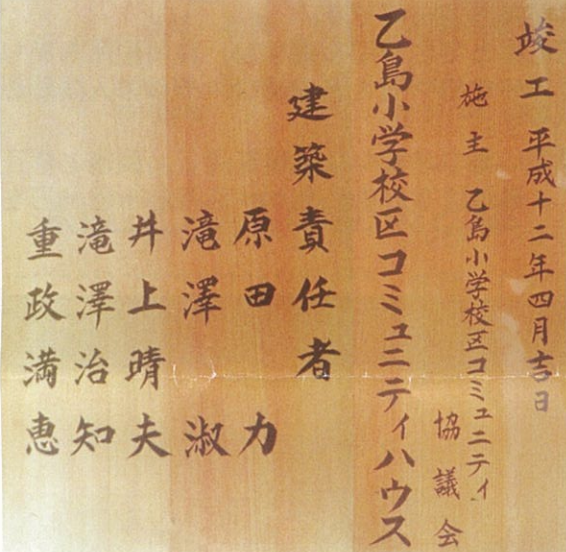 竣工 平成十二年四月吉日
施主 乙島小学校区コミュニティ
協議会
乙島小学校区コミュニティハウス
建築責任者
原田 力
滝澤 淑
井上晴夫
滝澤治知
重政満恵